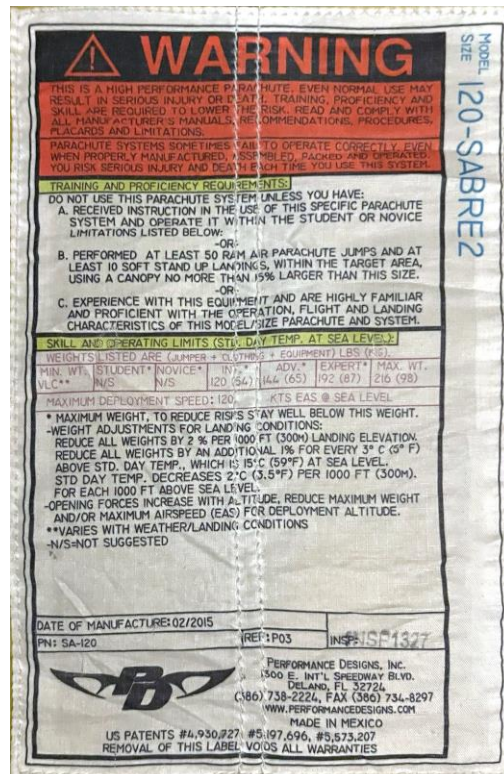 WARNING
THIS IS A HIGH PERFORMANCE PARACHUTE. EVEN NORMAL USE MAY
RESULT IN SERIOUS INJURY OR DEATH. TRAINING, PROFICIENCY AND
SKILL ARE REQUIRED TO LOWER THE RISK. READ AND COMPLY WITH
ALL MANUFACTURER'S MANUALS, RECOMMENDATIONS, PROCEDURES,
PLACARDS AND LIMITATIONS.
PARACHUTE SYSTEMS SOMETIMES FAIL TO OPERATE CORRECTLY, EVEN
WHEN PROPERLY MANUFACTURED, ASSEMBLED, PACKED AND OPERATED.
YOU RISK SERIOUS INJURY AND DEATH EACH TIME YOU USE THIS SYSTEM.
TRAINING AND PROFICIENCY REQUIREMENTS:
DO NOT USE THIS PARACHUTE SYSTEM UNLESS YOU HAVE:
A. RECEIVED INSTRUCTION IN THE USE OF THIS SPECIFIC PARACHUTE
SYSTEM AND OPERATE IT WITHIN THE STUDENT OR NOVICE
LIMITATIONS LISTED BELOW:
-OR-
B. PERFORMED AT LEAST 50 RAM AIR PARACHUTE JUMPS AND AT
LEAST 10 SOFT STAND UP LANDINGS, WITHIN THE TARGET AREA,
USING A CANOPY NO MORE THAN 15% LARGER THAN THIS SIZE.
-OR-
C. EXPERIENCE WITH THIS EQUIPMENT AND ARE HIGHLY FAMILIAR
AND PROFICIENT WITH THE OPERATION, FLIGHT AND LANDING
CHARACTERISTICS OF THIS MODEL/SIZE PARACHUTE AND SYSTEM.
SKILL AND OPERATING LIMITS (STD. DAY TEMP. AT SEA LEVEL):
WEIGHTS LISTED ARE (JUMPER + CLOTHING + EQUIPMENT) LBS (KGS).
MIN. WT. STUDENT* NOVICE* INT.* ADV.* EXPERT* MAX. WT.
VLC** N/S N/S 120 (54) 144 (65) 192 (87) 216 (98)
MAXIMUM DEPLOYMENT SPEED: 120 KTS EAS @ SEA LEVEL
* MAXIMUM WEIGHT, TO REDUCE RISKS STAY WELL BELOW THIS WEIGHT.
-WEIGHT ADJUSTMENTS FOR LANDING CONDITIONS:
REDUCE ALL WEIGHTS BY 2 % PER 1000 FT (300M) LANDING ELEVATION.
REDUCE ALL WEIGHTS BY AN ADDITIONAL 1% FOR EVERY 3° C (5° F)
ABOVE STD. DAY TEMP., WHICH IS 15°C (59°F) AT SEA LEVEL.
STD DAY TEMP. DECREASES 2°C (3.5°F) PER 1000 FT (300M).
FOR EACH 1000 FT ABOVE SEA LEVEL.
-OPENING FORCES INCREASE WITH ALTITUDE, REDUCE MAXIMUM WEIGHT
AND/OR MAXIMUM AIRSPEED (EAS) FOR DEPLOYMENT ALTITUDE.
**VARIES WITH WEATHER/LANDING CONDITIONS
-N/S=NOT SUGGESTED
DATE OF MANUFACTURE: 02/2015
PN: SA-120 REF: P03 INSP:
PD
PERFORMANCE DESIGNS, INC.
1300 E. INT'L SPEEDWAY BLVD.
DELAND, FL 32724
(386) 738-2224, FAX (386) 734-8297
WWW.PERFORMANCEDESIGNS.COM
MADE IN MEXICO
US PATENTS #4,930,727 #5,197,696, #5,573,207
REMOVAL OF THIS LABEL VOIDS ALL WARRANTIES
MODEL
SIZE 120-SABRE2